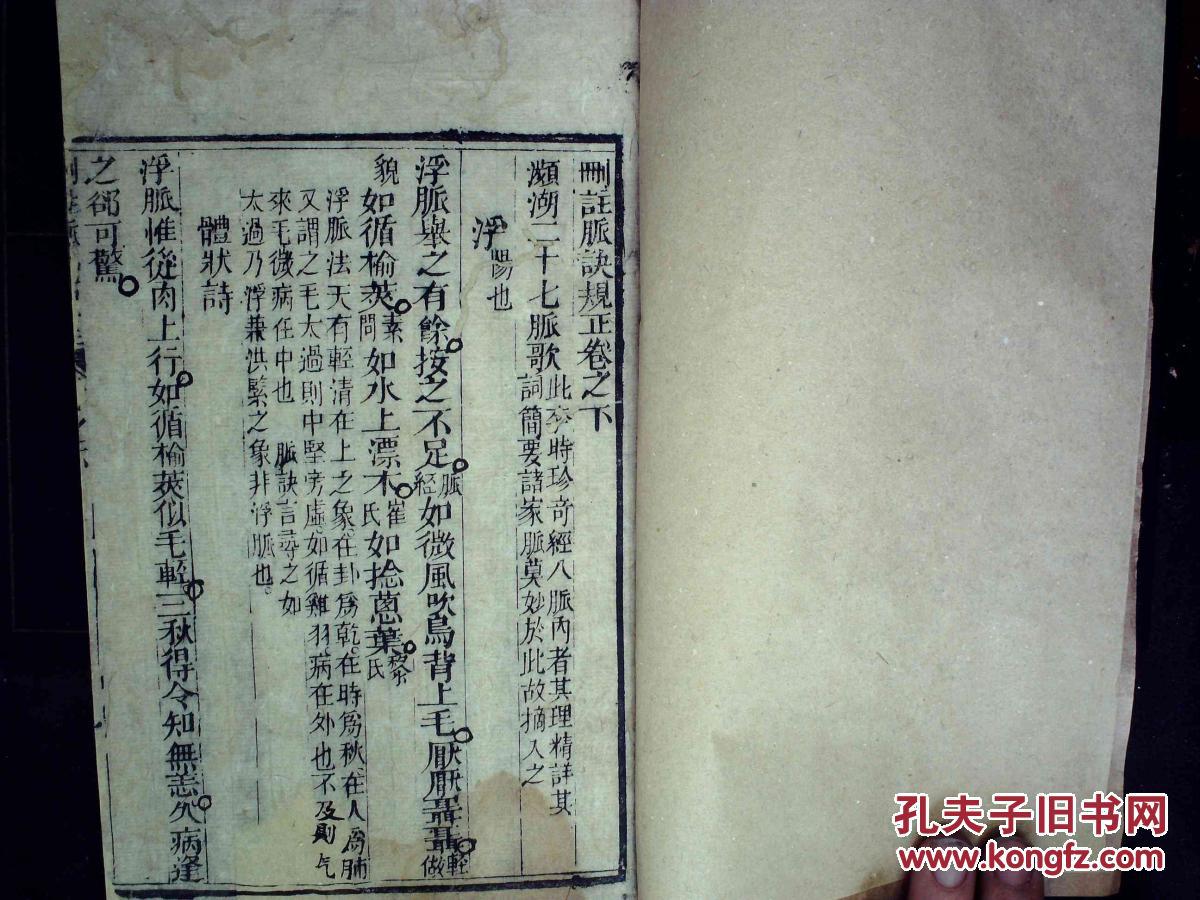 刪註脈訣規正卷之下
瀕湖二十七脈歌 此李時珍奇經八脈內者其理精詳其
詞簡要諸家脈莫妙於此故摘入之
浮 陽也
浮脈舉之有餘按之不足 脈經 如微風吹鳥背上毛厭厭聶聶 輕
做
貌如循榆莢 素問 如水上漂木 崔氏 如捻蔥葉 黎氏
浮脈法天有輕清在上之象在卦為乾在時為秋在人為肺
又謂之毛太過則中堅旁虛如循雞羽病在外也不及則气
來毛微病在中也 脈訣言尋之如
太過乃浮兼洪緊之象非浮脈也
體狀詩
浮脈惟從肉上行如循榆莢似毛輕三秋得令知無恙久病逢
之卻可驚
孔夫子旧书网
www.kongfz.com